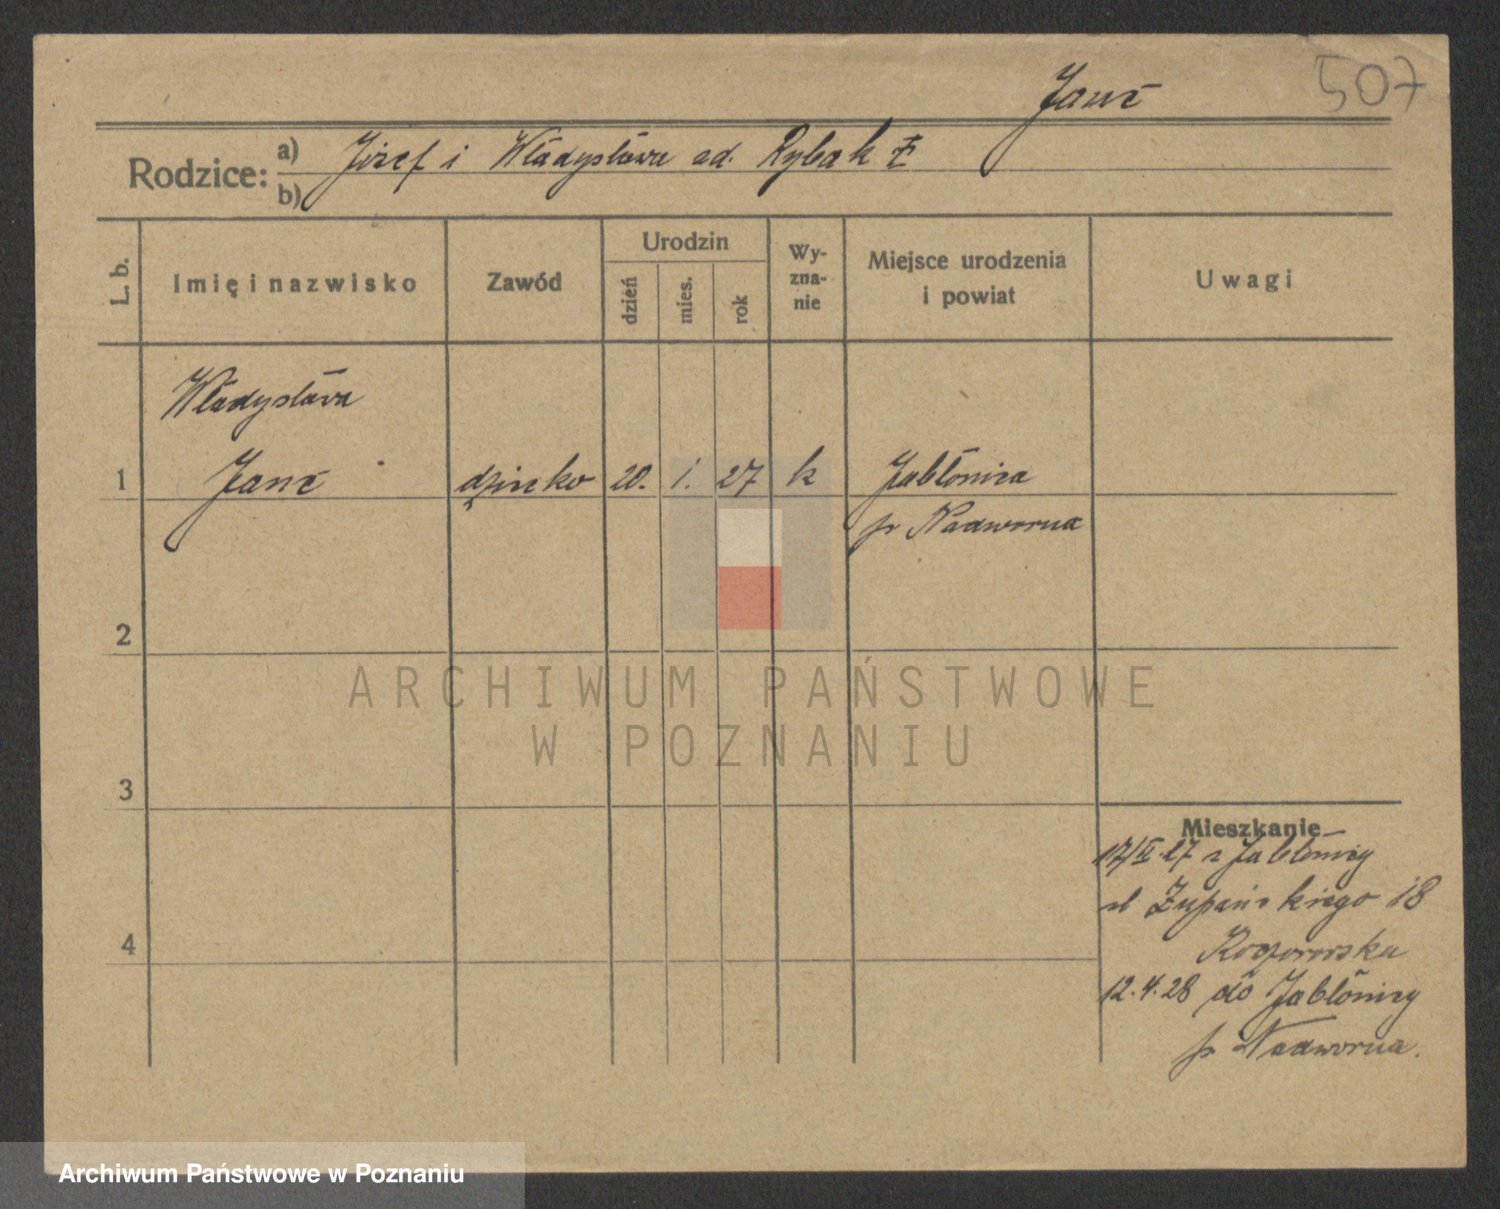 507
Janc
Rodzice: a) Józef i Władysława ad. Rybak
b)
L. b.
Imię i nazwisko
Zawód
Urodzin
dzień
mies.
rok
Wy-
zna-
nie
Miejsce urodzenia
i powiat
Uwagi
Władysława
1 Janc dziecko 20. 1. 27 k Jabłonica
p. Nadworna
2
3
4
Mieszkanie
17/II.27 z Jabłonicy
ul Żupańskiego 18
12.4.28 do Jabłonicy
p. Nadworna.
ARCHIWUM PAŃSTWOWE
W POZNANIU
Archiwum Państwowe w Poznaniu